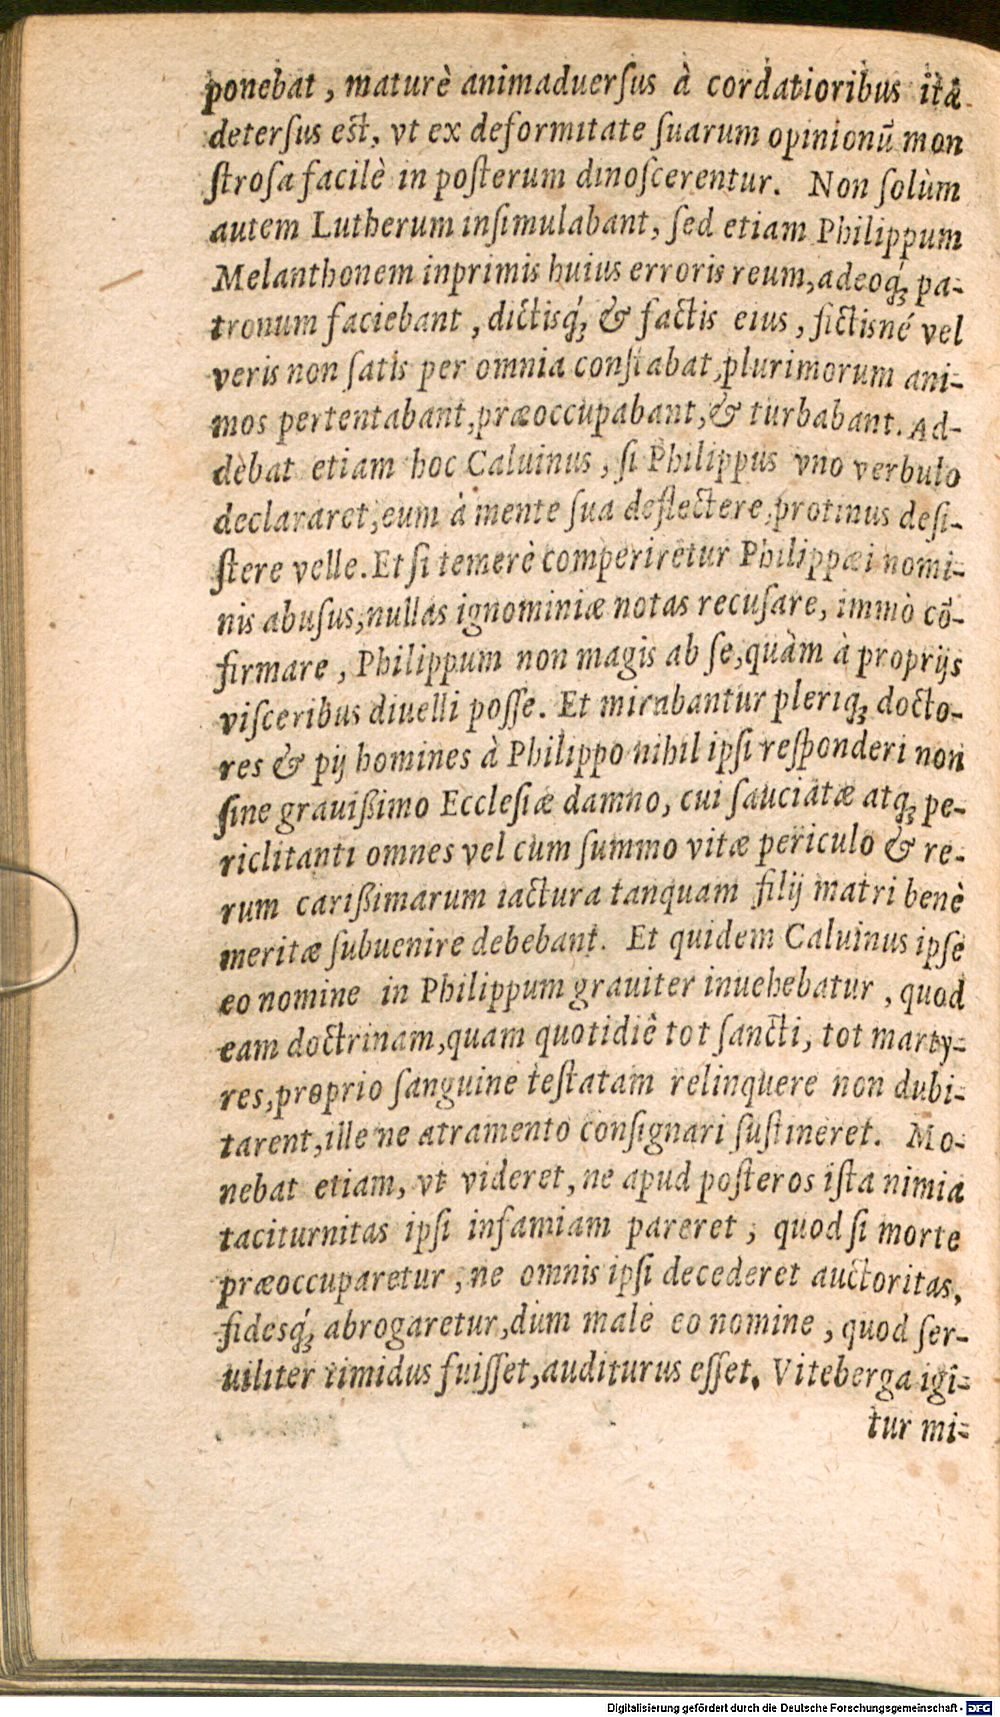 ponebat, maturè animaduerſus à cordatioribus ita
deterſus eſt, vt ex deformitate ſuarum opinionū mon
ſtroſa facilè in poſterum dinoſcerentur. Non ſolùm
autem Lutherum inſimulabant, ſed etiam Philippum
Melanthonem inprimis huius erroris reum, adeoq́ꝫ pa-
tronum faciebant, dictisq́ꝫ & factis eius, fictisné vel
veris non ſatis per omnia conſtabat, plurimorum ani-
mos pertentabant, præoccupabant, & turbabant. Ad-
debat etiam hoc Caluinus, ſi Philippus vno verbulo
declararet, eum à mente ſua deflectere, protinus deſi-
ſtere velle. Et ſi temerè comperiretur Philippæi nomi-
nis abuſus, nullas ignominiæ notas recuſare, immò cō-
firmare, Philippum non magis ab ſe, quàm à proprijs
viſceribus diuelli poſſe. Et mirabantur pleriqꝫ docto-
res & pij homines à Philippo nihil ipſi reſponderi non
ſine grauißimo Eccleſiæ damno, cui ſauciatæ atqꝫ pe-
riclitanti omnes vel cum ſummo vitæ periculo & re-
rum carißimarum iactura tanquam filij matri benè
meritæ ſubuenire debebant. Et quidem Caluinus ipſe
eo nomine in Philippum grauiter inuehebatur, quod
eam doctrinam, quam quotidiê tot ſancti, tot marty-
res, proprio ſanguine teſtatam relinquere non dubi-
tarent, ille ne atramento conſignari ſuſtineret. Mo-
nebat etiam, vt videret, ne apud poſteros iſta nimia
taciturnitas ipſi infamiam pareret, quod ſi morte
præoccuparetur, ne omnis ipſi decederet auctoritas,
fidesq́ꝫ abrogaretur, dum malè eo nomine, quod ſer-
uiliter timidus fuiſſet, auditurus eſſet. Viteberga igi-
tur mi-
Digitalisierung gefördert durch die Deutsche Forschungsgemeinschaft - DFG